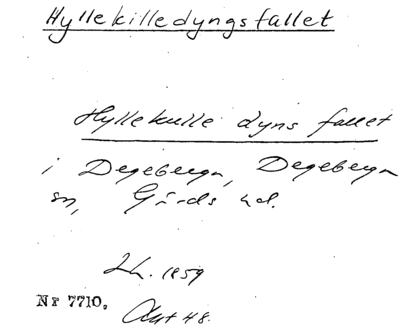 Hyllekilledyngsfallet
Hyllekulle dyns fallet
i Degeberga, Degeberga
sn, Gärds hd.
Lh. 1859
Nr 7710. Akt 48.